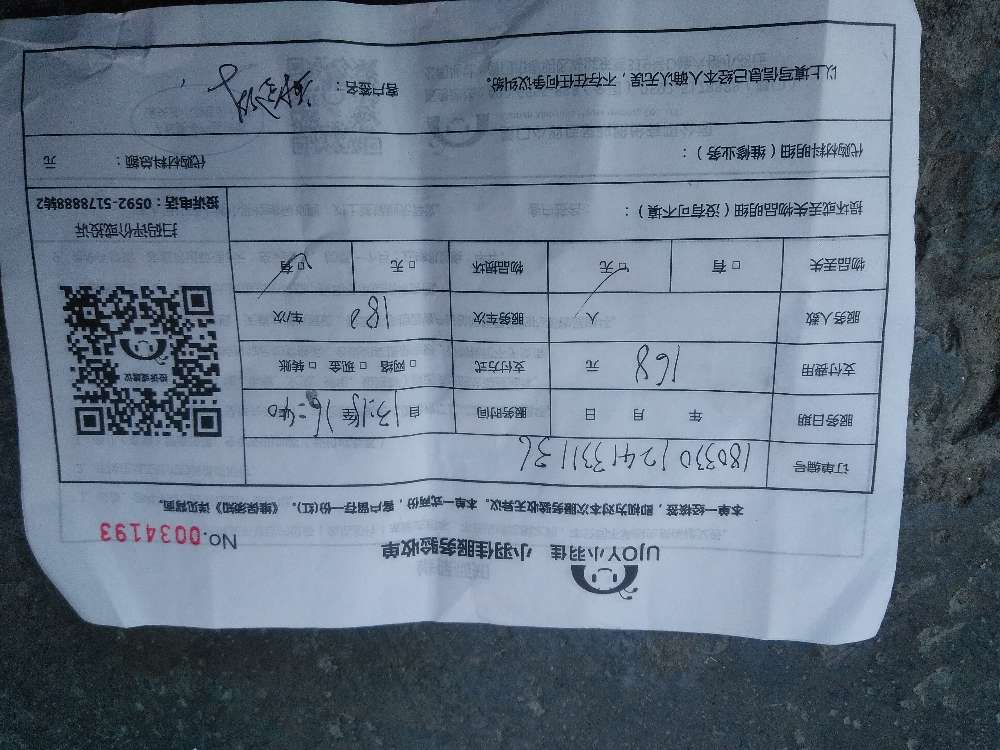 UJOY小羽佳 小羽佳服务验收单
No.0034193
本单一经核签，即视为对本次服务验收无异议。本单一式两份，客户留存一份(红)。《维保须知》详见背面。
订单编号 180330124133111 36
服务日期 年 月 日 服务时间 自 13:15至16:40
支付费用 168 元 支付方式 □网络 □现金 □转账
服务人数 人 服务车次 182 车/次
物品丢失 □有 □无 物品损坏 □无 □有
损坏或丢失物品明细（没有可不填）：
投诉或建议
扫码评价或投诉
投诉电话：0592-5178888转2
代购材料明细（维修业务）： 代购材料总额： 元
以上填写信息已经本人确认无误，不存在任何争议纠纷。 客户签名：